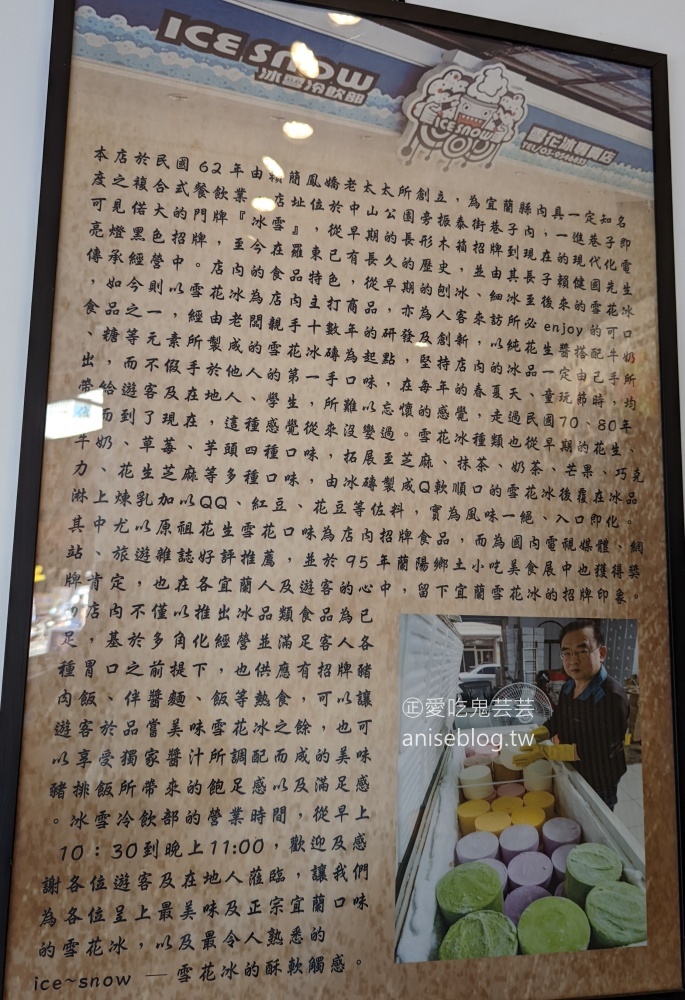 ICE SNOW
冰雪冷飲部
ICE SNOW
雪花冰專賣店
本店於民國62年由賴簡鳳嬌老太太所創立，為宜蘭縣內具一定知名
度之複合式餐飲業，店址位於中山公園旁振泰街巷子內，一進巷子即
可見偌大的門牌『冰雪』，從早期的長形木箱招牌到現在的現代化電
亮燈黑色招牌，至今在羅東已有長久的歷史，並由其長子賴健國先生
傳承經營中。店內的食品特色，從早期的刨冰、細冰至後來的雪花冰
，如今則以雪花冰為店內主打商品，亦為人客來訪所必enjoy的可口
食品之一，經由老闆親手十數年的研發及創新，以純花生醬搭配牛奶
、糖等元素所製成的雪花冰磚為起點，堅持店內的冰品一定由己手所
出，而不假手於他人的第一手口味，在每年的春夏天、童玩節時，均
帶給遊客及在地人、學生，所難以忘懷的感覺，走過民國70、80年
而到了現在，這種感覺從來沒變過。雪花冰種類也從早期的花生、
牛奶、草莓、芋頭四種口味，拓展至芝麻、抹茶、奶茶、芒果、巧克
力、花生芝麻等多種口味，由冰磚製成Q軟順口的雪花冰後覆在冰品
淋上煉乳加以QQ、紅豆、花豆等佐料，實為風味一絕、入口即化。
其中尤以原祖花生雪花口味為店內招牌食品，而為國內電視媒體、網
站、旅遊雜誌好評推薦，並於95年蘭陽鄉土小吃美食展中也獲得獎
牌肯定，也在各宜蘭人及遊客的心中，留下宜蘭雪花冰的招牌印象。
店內不僅以推出冰品類食品為已
足，基於多角化經營並滿足客人各
種胃口之前提下，也供應有招牌豬
肉飯、伴醬麵、飯等熱食，可以讓
遊客於品嘗美味雪花冰之餘，也可
以享受獨家醬汁所調配而成的美味
豬排飯所帶來的飽足感以及滿足感
。冰雪冷飲部的營業時間，從早上
10：30到晚上11:00，歡迎及感
謝各位遊客及在地人蒞臨，讓我們
為各位呈上最美味及正宗宜蘭口味
的雪花冰，以及最令人熟悉的
ice~snow —雪花冰的酥軟觸感。
㊣愛吃鬼芸芸
aniseblog.tw